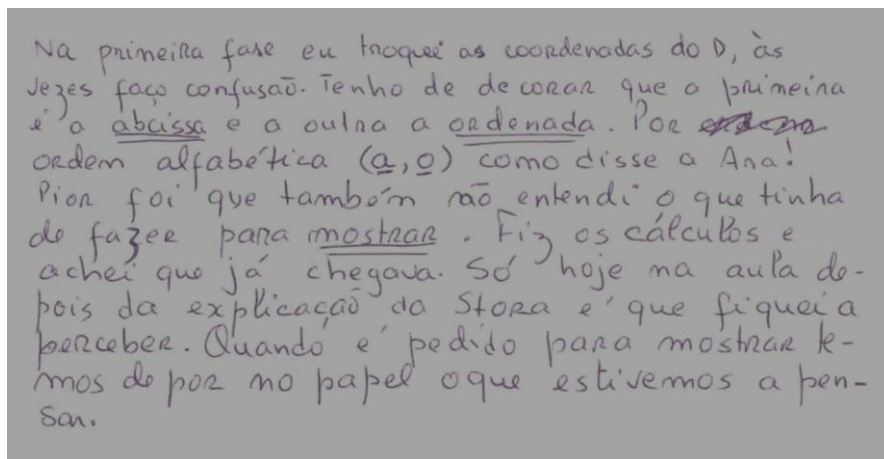 Na primeira fase eu troquei as coordenadas do D, às
vezes faço confusão. Tenho de decorar que a primeira
é a abcissa e a outra a ordenada. Por
ordem alfabética (a, o) como disse a Ana!
Pior foi que também não entendi o que tinha
de fazer para mostrar. Fiz os cálculos e
achei que já chegava. Só hoje na aula de-
pois da explicação da Stora é que fiquei a
perceber. Quando é pedido para mostrar te-
mos de por no papel o que estivemos a pen-
sar.